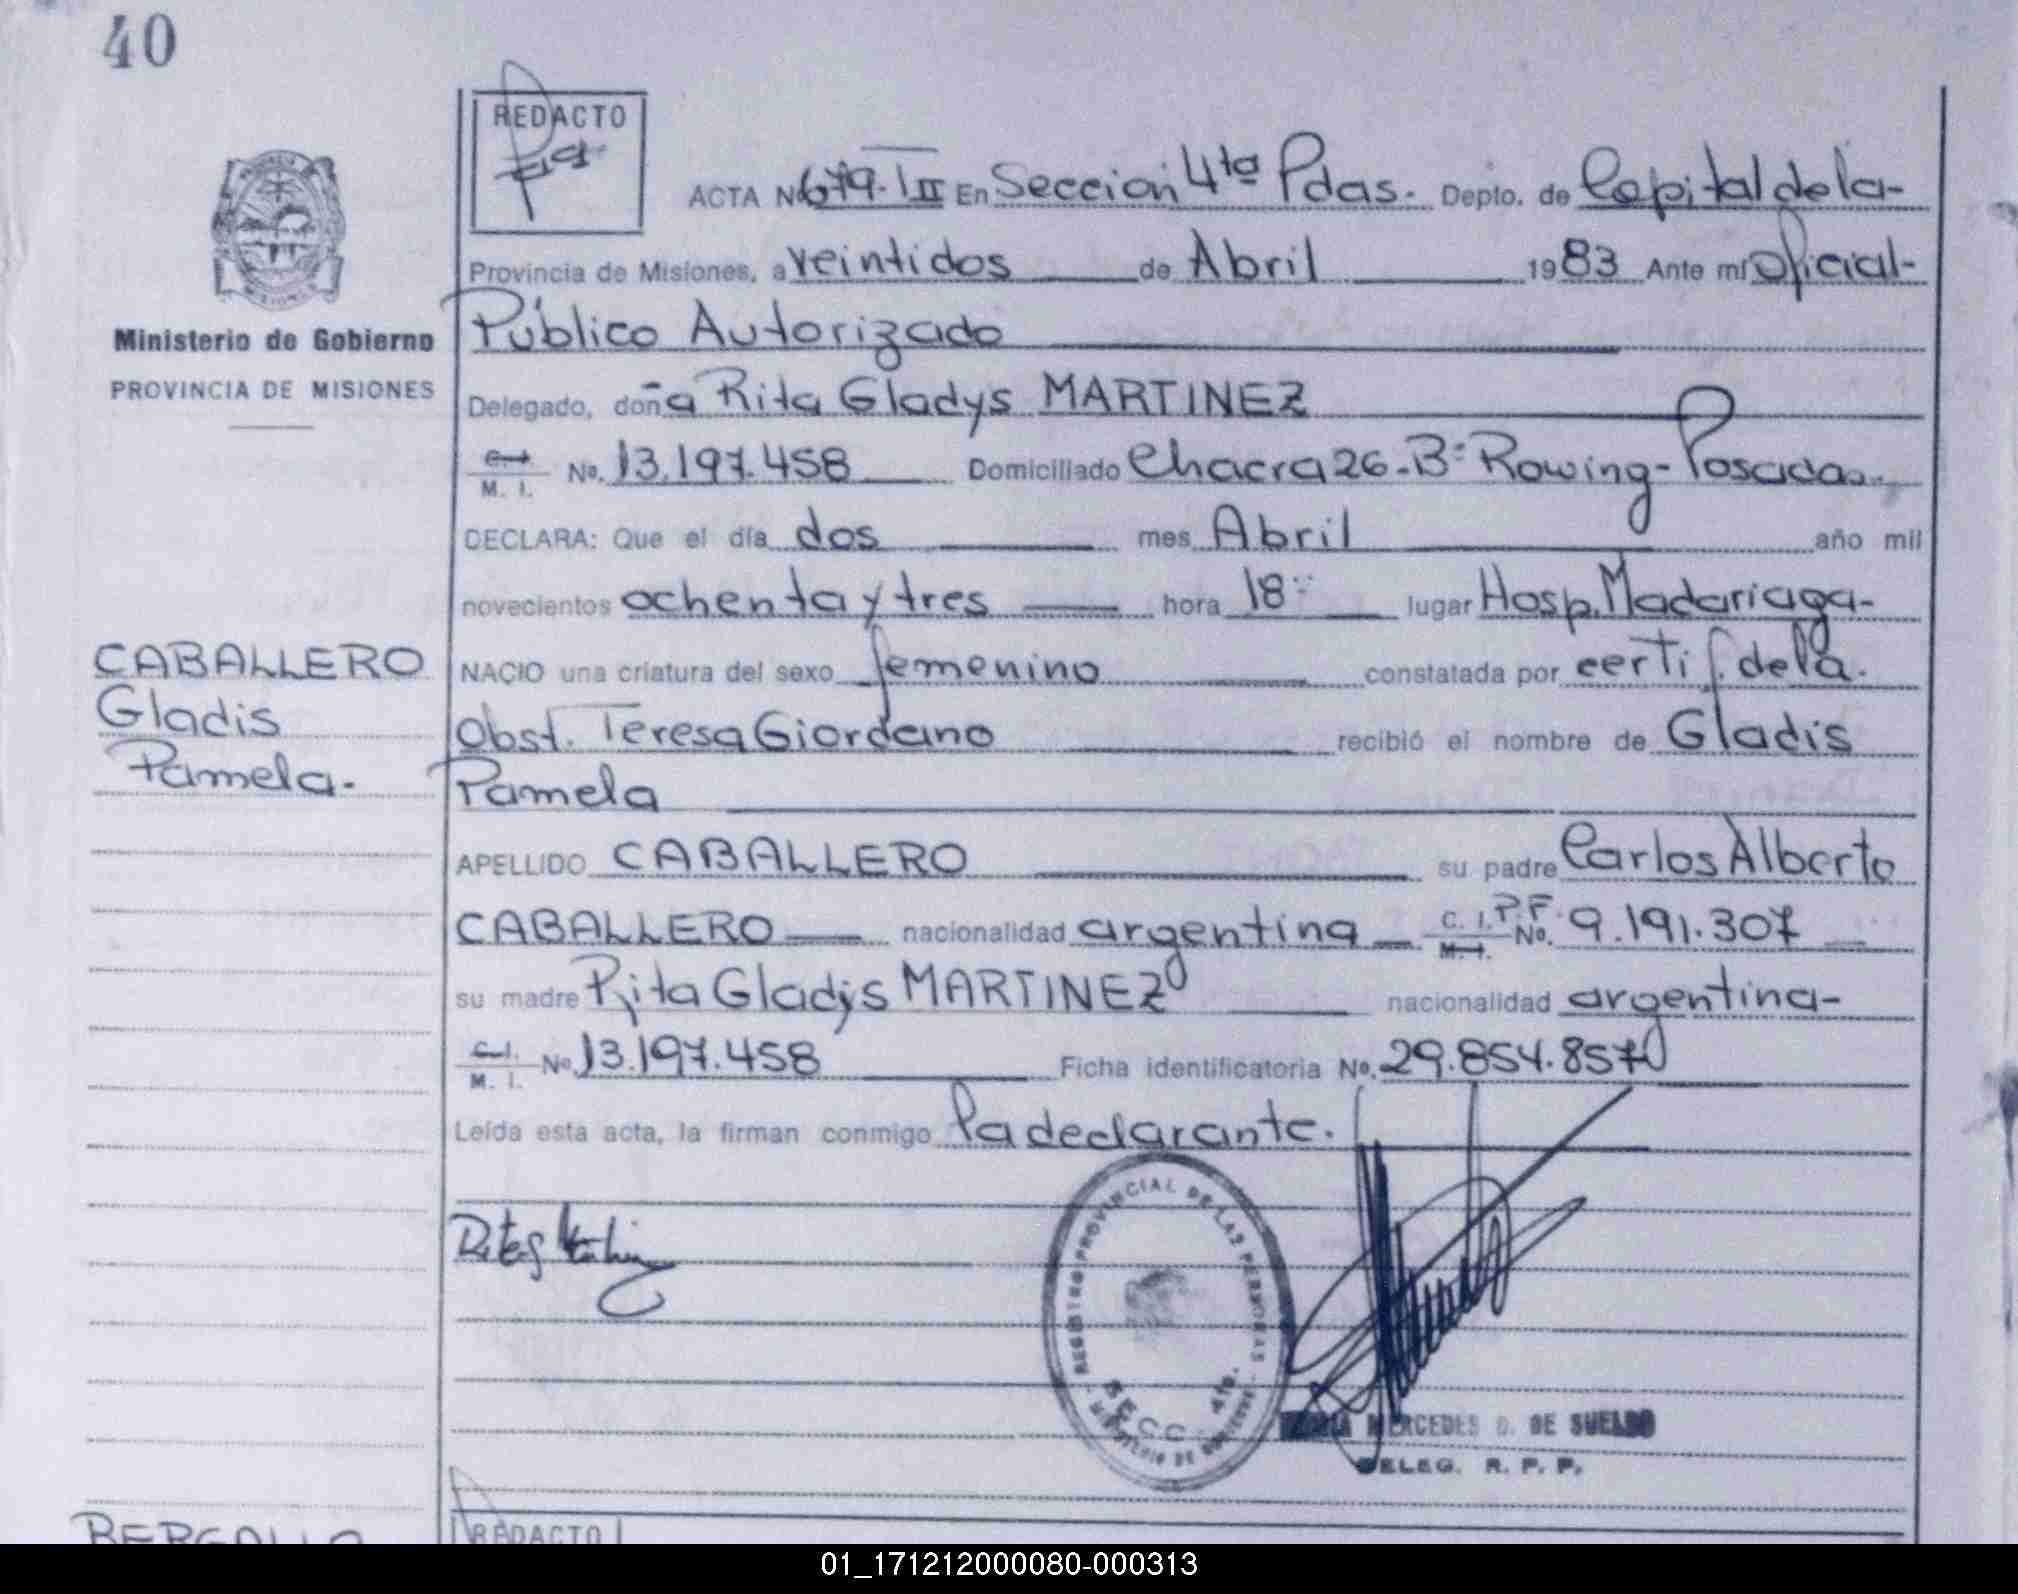 40
REDACTO
ACTA No 679. TII En Sección 4ta Pdas. Depto. de Capital de la-
Provincia de Misiones, a veintidos de Abril 1983 Ante mí Oficial-
Ministerio de Gobierno
PROVINCIA DE MISIONES
Público Autorizado
Delegado, doña Rita Gladys MARTINEZ
C.I. M. I. No. 13.197.458 Domiciliado Chacra 26-Bº Rowing-Posadas.
DECLARA: Que el día dos mes Abril año mil
novecientos ochenta y tres hora 18 lugar Hosp. Madariaga-
CABALLERO
Gladis
Pamela.
NACIO una criatura del sexo femenino constatada por certif. de la.
Obst. Teresa Giordano recibió el nombre de Gladis
Pamela
APELLIDO CABALLERO su padre Carlos Alberto
CABALLERO nacionalidad argentina C. I. M.I. P.F. No. 9.191.307
su madre Rita Gladys MARTINEZ nacionalidad argentina-
C.I. M. I. No. 13.197.458 Ficha identificatoria No. 29.854.857
Leída esta acta, la firman conmigo la declarante.
REGISTRO PROVINCIAL DE LAS PERSONAS
SECC. 4ta.
MINISTERIO DE GOBIERNO
MERCEDES D. DE SUELDO
DELEG. R. P. P.
BERGALLO
REDACTO
01_171212000080-000313